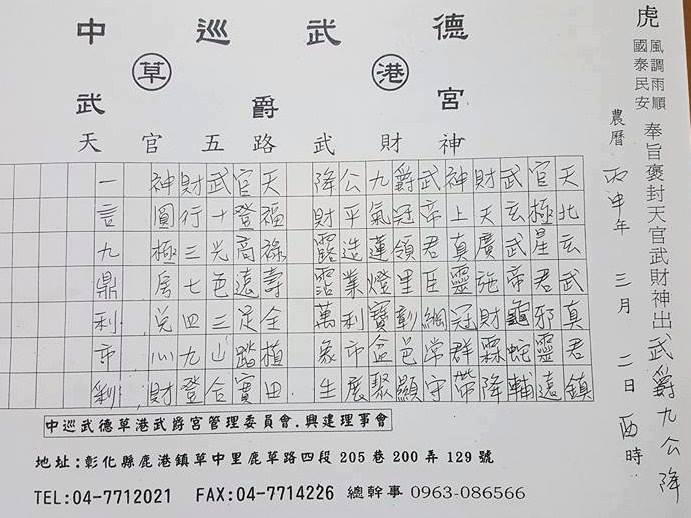 虎
風調雨順
國泰民安
奉旨褒封天官武財神出武爵九公降
農曆 丙申年 三月 二日 酉時
中巡武德
草 港
武爵宮
天官五路武財神
天北玄武真君鎮
官極星君邪靈遠
武玄武帝龜蛇輔
財天廣施財霖降
神上真靈冠群帶
武帝君臣綱常守
爵冠領里彰邑顯
九氣蓮燈寶盒聚
公平造業利市展
降財露霑萬象生
天福祿壽全植田
官登高遠足踏實
武十光色三山合
財行三七四九登
神圓極房兌心財
一言九鼎利市利
中巡武德草港武爵宮管理委員會.興建理事會
地址:彰化縣鹿港鎮草中里鹿草路四段205巷200弄129號
TEL:04-7712021 FAX:04-7714226 總幹事 0963-086566